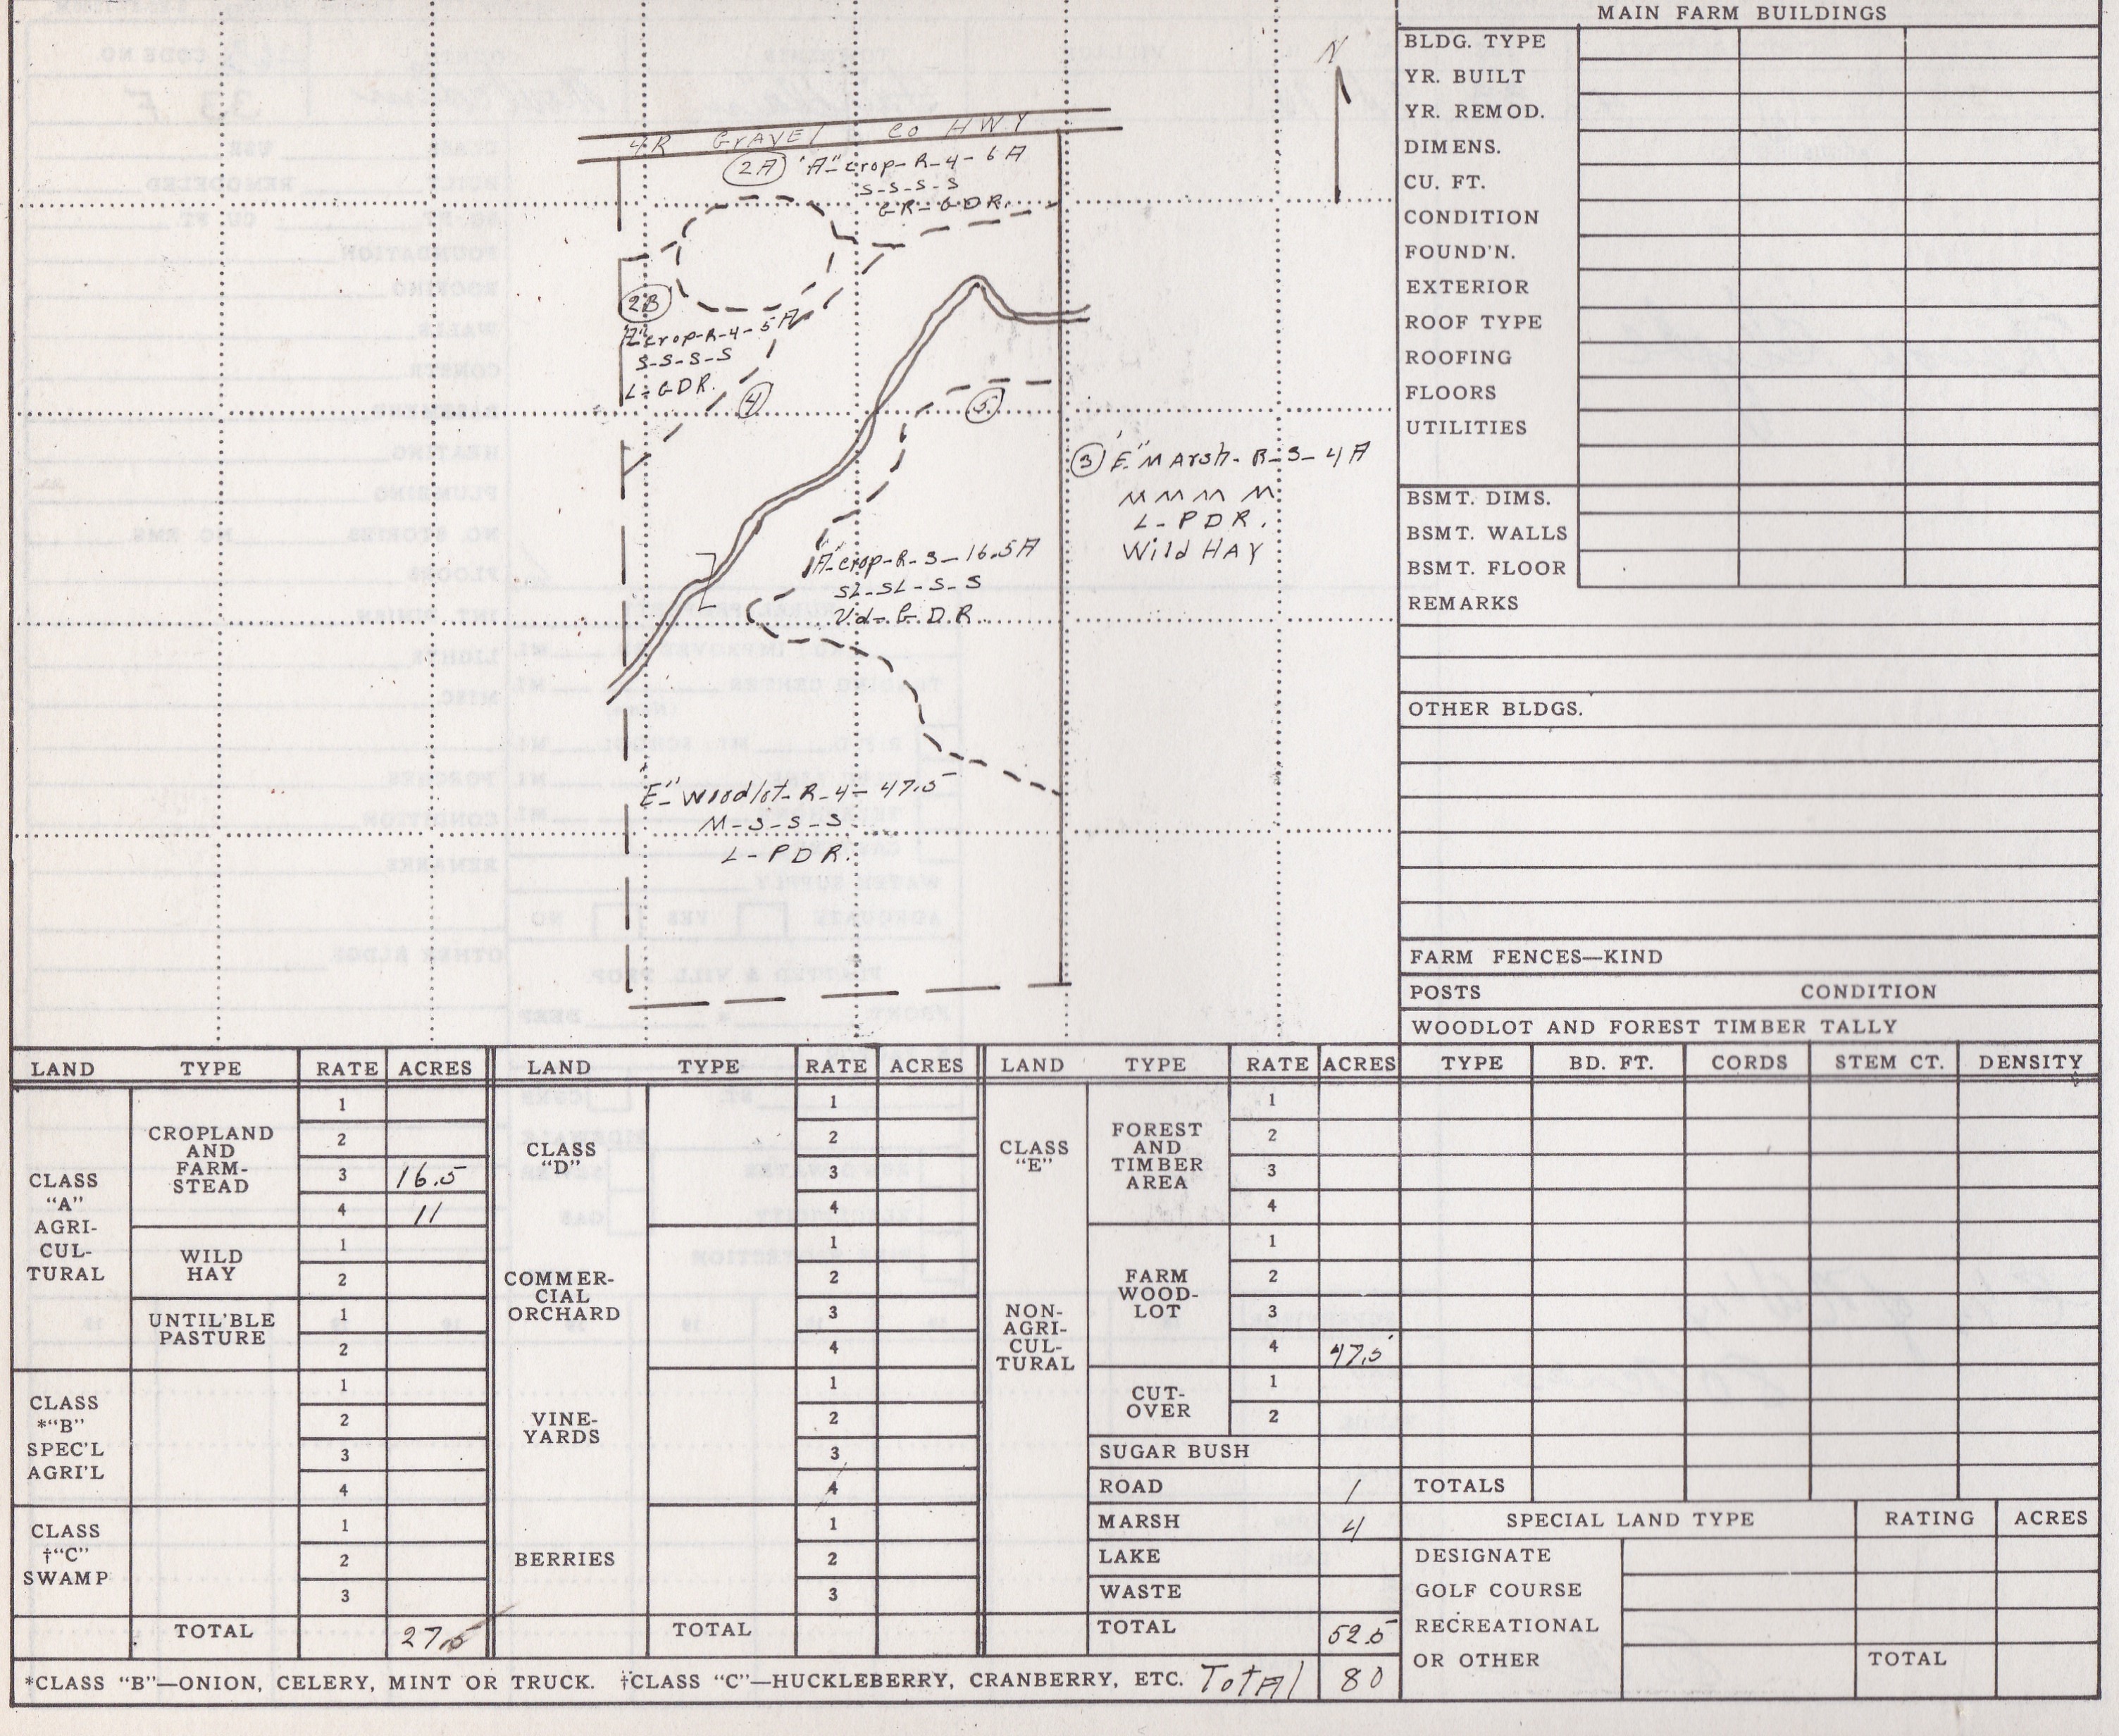 N
4R GRAVEL Co HWY
2A "A" crop-R-4-6A
S-S-S-S
GR-GDR.
2B
"A" crop-R-4-5A
S-S-S-S
L-GDR.
4
5
3 "E" Marsh-R-3-4A
M M M M
L-PDR.
Wild HAY
"A" crop-R-3-16.5A
SL-SL-S-S
Vd-G.D.R.
"E" Woodlot-R-4-47.5
M-S-S-S
L-PDR.
MAIN FARM BUILDINGS
BLDG. TYPE
YR. BUILT
YR. REMOD.
DIMENS.
CU. FT.
CONDITION
FOUND'N.
EXTERIOR
ROOF TYPE
ROOFING
FLOORS
UTILITIES
BSMT. DIMS.
BSMT. WALLS
BSMT. FLOOR
REMARKS
OTHER BLDGS.
FARM FENCES—KIND
POSTS CONDITION
WOODLOT AND FOREST TIMBER TALLY
TYPE BD. FT. CORDS STEM CT. DENSITY
TOTALS
SPECIAL LAND TYPE RATING ACRES
DESIGNATE
GOLF COURSE
RECREATIONAL
OR OTHER TOTAL
LAND TYPE RATE ACRES
CLASS
"A"
AGRI-
CUL-
TURAL
CROPLAND
AND
FARM-
STEAD
1
2
3 16.5
4 11
WILD
HAY
1
2
UNTIL'BLE
PASTURE
1
2
CLASS
*"B"
SPEC'L
AGRI'L
1
2
3
4
CLASS
†"C"
SWAMP
1
2
3
TOTAL 27.5
LAND TYPE RATE ACRES
CLASS
"D"
1
2
3
4
COMMER-
CIAL
ORCHARD
1
2
3
4
VINE-
YARDS
1
2
3
4
BERRIES
1
2
3
TOTAL
LAND TYPE RATE ACRES
CLASS
"E"
NON-
AGRI-
CUL-
TURAL
FOREST
AND
TIMBER
AREA
1
2
3
4
FARM
WOOD-
LOT
1
2
3
4 47.5
CUT-
OVER
1
2
SUGAR BUSH
ROAD 1
MARSH 4
LAKE
WASTE
TOTAL 52.5
*CLASS "B"—ONION, CELERY, MINT OR TRUCK. †CLASS "C"—HUCKLEBERRY, CRANBERRY, ETC. TotAl 80